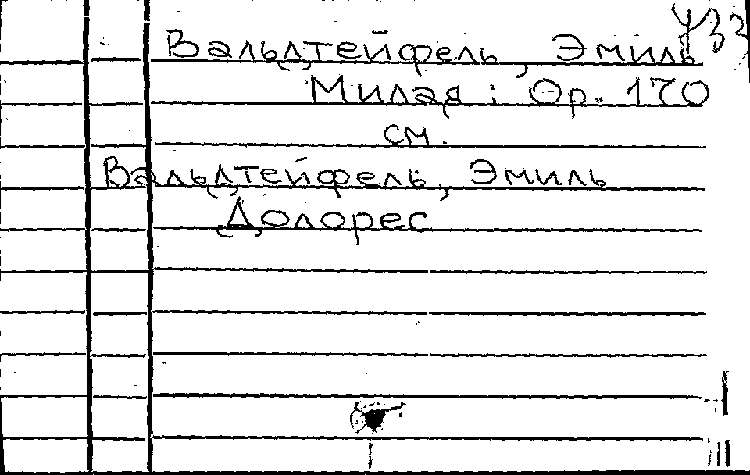 Вальдтейфель, Эмиль
Милая : Op. 170
см.
Вальдтейфель, Эмиль
Долорес